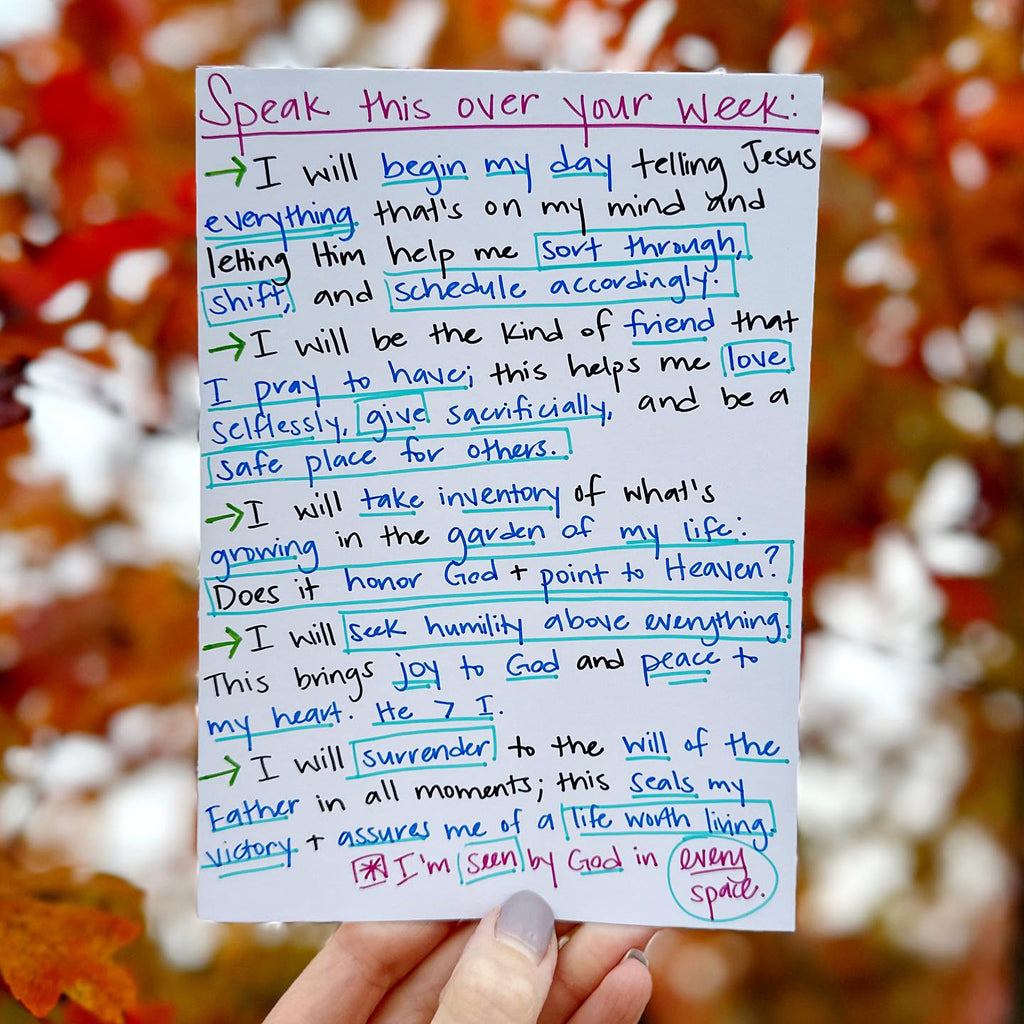 Speak this over your week:
→ I will begin my day telling Jesus
everything that's on my mind and
letting Him help me sort through,
shift, and schedule accordingly.
→ I will be the kind of friend that
I pray to have; this helps me love
selflessly, give sacrificially, and be a
safe place for others.
→ I will take inventory of what's
growing in the garden of my life:
Does it honor God + point to Heaven?
→ I will seek humility above everything.
This brings joy to God and peace to
my heart. He > I.
→ I will surrender to the will of the
Father in all moments; this seals my
victory + assures me of a life worth living.
* I'm seen by God in every
space.